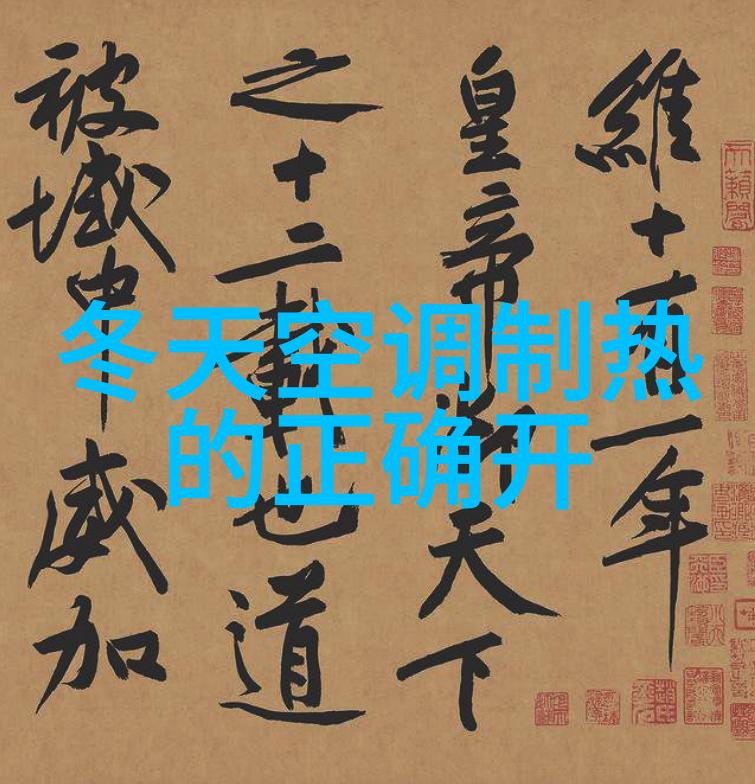 冬天空调制热
的正确开
維十有一年
皇帝御天下
之十二載也道
被域中威加